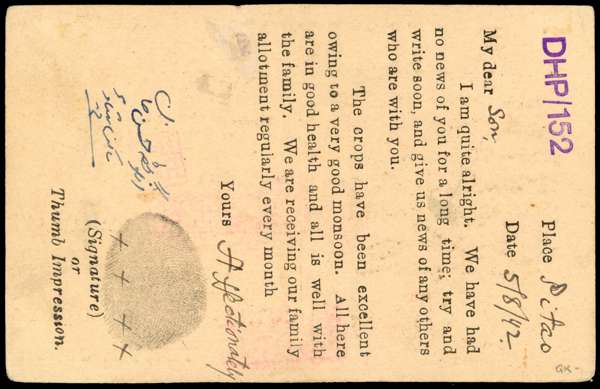 DHP/152
Place Pitao
Date 5/8/42.
My dear Son,
I am quite alright. We have had
no news of you for a long time; try and
write soon, and give us news of any others
who are with you.
The crops have been excellent
owing to a very good monsoon. All here
are in good health and all is well with
the family. We are receiving our family
allotment regularly every month
Yours Affectionately
(Signature)
or
Thumb Impression.
GK-